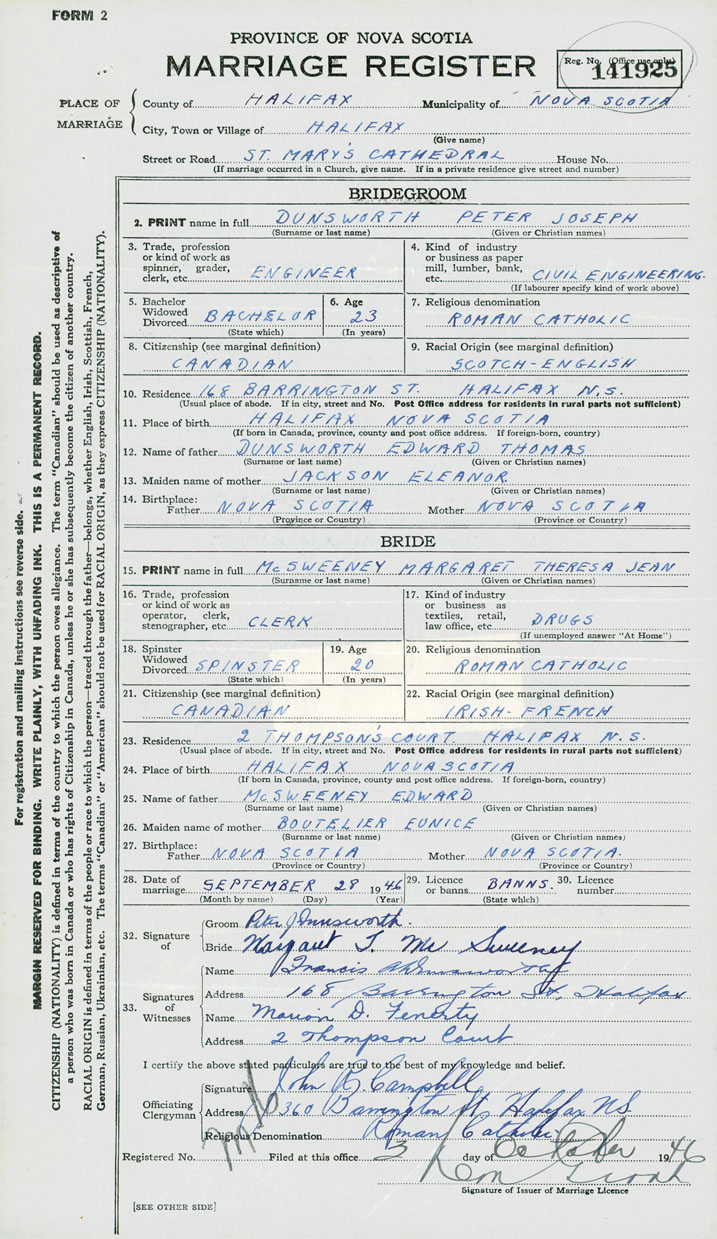 FORM 2
PROVINCE OF NOVA SCOTIA
MARRIAGE REGISTER
Reg. No. (Office use only)
141925
PLACE OF MARRIAGE
County of HALIFAX Municipality of NOVA SCOTIA
City, Town or Village of HALIFAX
(Give name)
Street or Road ST. MARY'S CATHEDRAL House No.
(If marriage occurred in a Church, give name. If in a private residence give street and number)
BRIDEGROOM
2. PRINT name in full DUNSWORTH PETER JOSEPH
(Surname or last name) (Given or Christian names)
3. Trade, profession or kind of work as spinner, grader, clerk, etc. ENGINEER
4. Kind of industry or business as paper mill, lumber, bank, etc. CIVIL ENGINEERING.
(If labourer specify kind of work above)
5. Bachelor Widowed Divorced BACHELOR
(State which)
6. Age 23
(In years)
7. Religious denomination
ROMAN CATHOLIC
8. Citizenship (see marginal definition)
CANADIAN
9. Racial Origin (see marginal definition)
SCOTCH-ENGLISH
10. Residence 168 BARRINGTON ST. HALIFAX N.S.
(Usual place of abode. If in city, street and No. Post Office address for residents in rural parts not sufficient)
11. Place of birth HALIFAX NOVA SCOTIA
(If born in Canada, province, county and post office address. If foreign-born, country)
12. Name of father DUNSWORTH EDWARD THOMAS
(Surname or last name) (Given or Christian names)
13. Maiden name of mother JACKSON ELEANOR
(Surname or last name) (Given or Christian names)
14. Birthplace:
Father NOVA SCOTIA Mother NOVA SCOTIA
(Province or Country) (Province or Country)
BRIDE
15. PRINT name in full McSWEENEY MARGARET THERESA JEAN
(Surname or last name) (Given or Christian names)
16. Trade, profession or kind of work as operator, clerk, stenographer, etc. CLERK
17. Kind of industry or business as textiles, retail, law office, etc. DRUGS
(If unemployed answer "At Home")
18. Spinster Widowed Divorced SPINSTER
(State which)
19. Age 20
(In years)
20. Religious denomination
ROMAN CATHOLIC
21. Citizenship (see marginal definition)
CANADIAN
22. Racial Origin (see marginal definition)
IRISH-FRENCH
23. Residence 2 THOMPSON'S COURT HALIFAX N.S.
(Usual place of abode. If in city, street and No. Post Office address for residents in rural parts not sufficient)
24. Place of birth HALIFAX NOVA SCOTIA
(If born in Canada, province, county and post office address. If foreign-born, country)
25. Name of father McSWEENEY EDWARD
(Surname or last name) (Given or Christian names)
26. Maiden name of mother BOUTELIER EUNICE
(Surname or last name) (Given or Christian names)
27. Birthplace:
Father NOVA SCOTIA Mother NOVA SCOTIA.
(Province or Country) (Province or Country)
28. Date of marriage SEPTEMBER 28 1946
(Month by name) (Day) (Year)
29. Licence or banns BANNS.
(State which)
30. Licence number
32. Signature of
Groom Peter J Dunsworth.
Bride Margaret T. Mc Sweeney
33. Signatures of Witnesses
Name Francis Dunsworth
Address 168 Barrington St, Halifax
Name Marion D. Fenerty
Address 2 Thompson Court
I certify the above stated particulars are true to the best of my knowledge and belief.
Officiating Clergyman
Signature John R Campbell
Address 360 Barrington St, Halifax NS
Religious Denomination Roman Catholic
Registered No. Filed at this office 3 day of October 1946
Signature of Issuer of Marriage Licence
[SEE OTHER SIDE]
For registration and mailing instructions see reverse side.
MARGIN RESERVED FOR BINDING. WRITE PLAINLY, WITH UNFADING INK. THIS IS A PERMANENT RECORD.
CITIZENSHIP (NATIONALITY) is defined in terms of the country to which the person owes allegiance. The term "Canadian" should be used as descriptive of
a person who was born in Canada or who has rights of Citizenship in Canada, unless he or she has subsequently become the citizen of another country.
RACIAL ORIGIN is defined in terms of the people or race to which the person—traced through the father—belongs, whether English, Irish, Scottish, French,
German, Russian, Ukrainian, etc. The terms "Canadian" or "American" should not be used for RACIAL ORIGIN, as they express CITIZENSHIP (NATIONALITY).